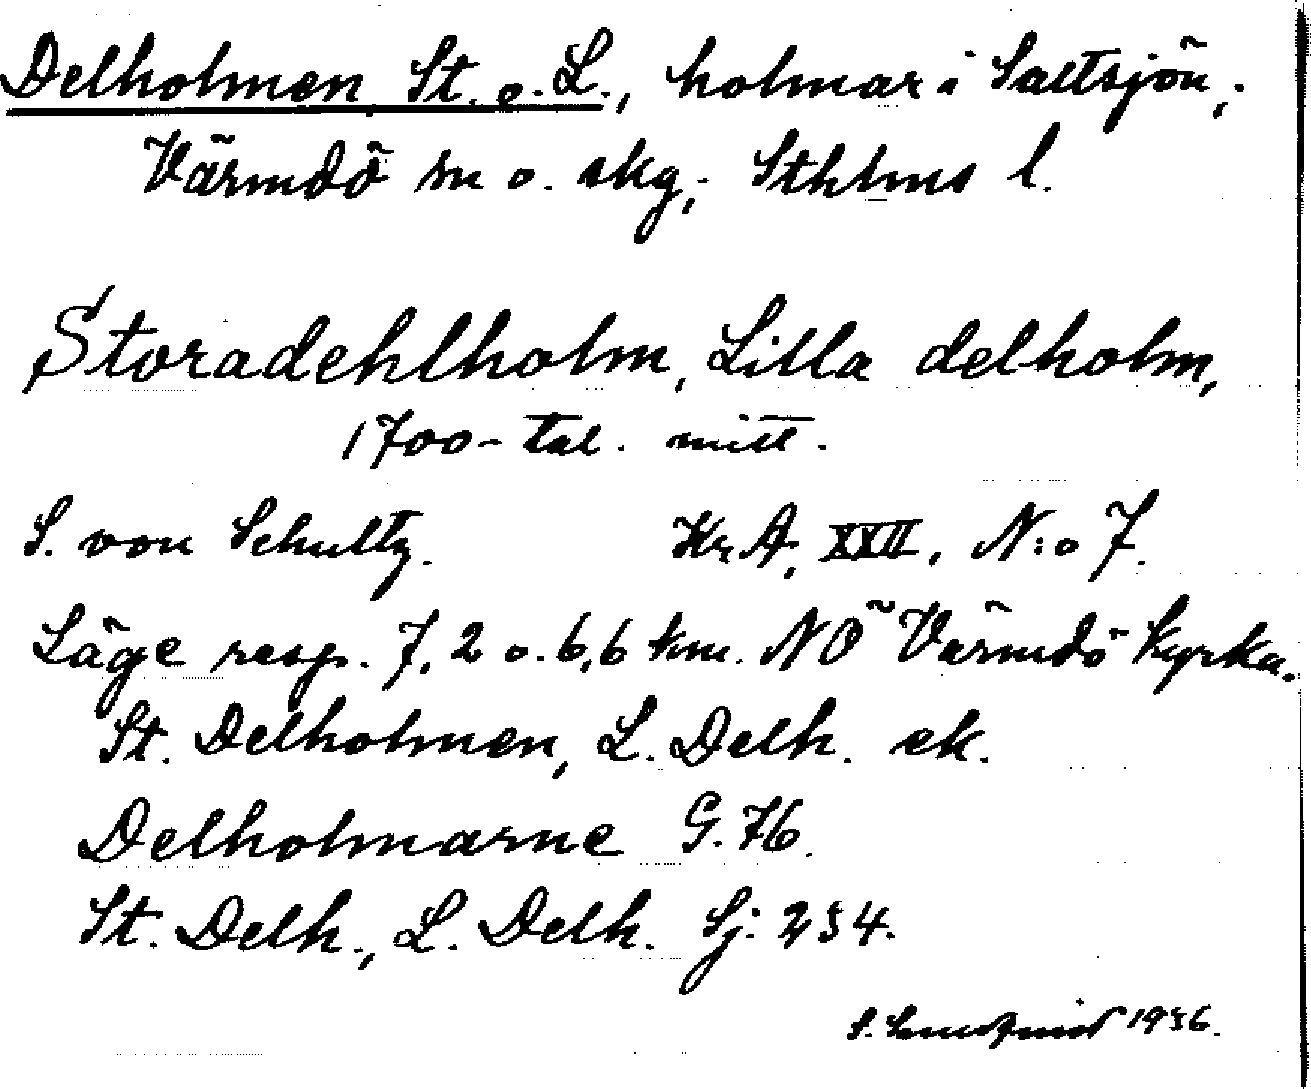 Delholmen, St. o. L., holmar i Saltsjön,
Värmdö sn o. skg, Sthlms l.
Storadehlholm, Lilla delholm,
1700-tal. mitt.
S. von Schultz. Kr.A, XXII, N:o 7.
Läge resp. 7,2 o. 6,6 km. NO Värmdö kyrka.
St. Delholmen, L. Delh. ek.
Delholmarne G.76.
St. Delh., L. Delh. Sj: 234.
S. 1936.